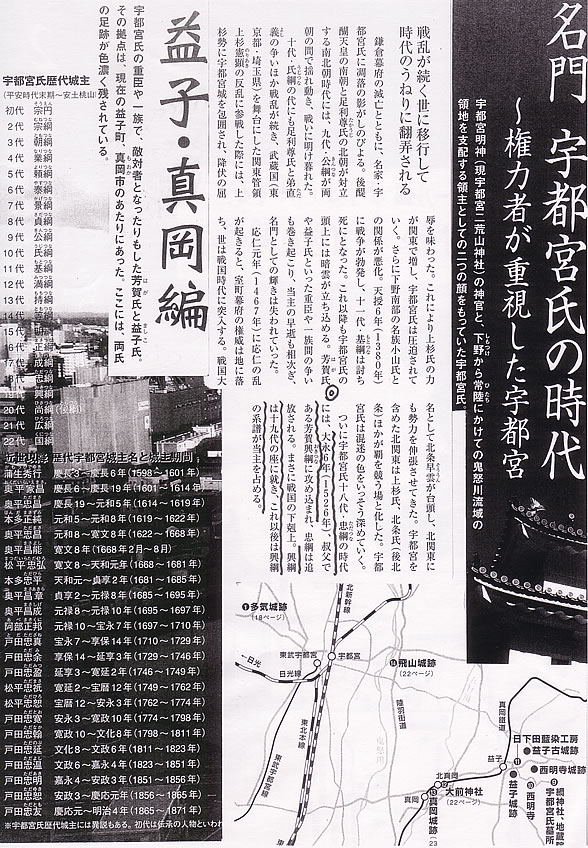 名門 宇都宮氏の時代
〜権力者が重視した宇都宮
宇都宮明神（現宇都宮二荒山神社）の神官と、下野から常陸にかけての鬼怒川流域の
領地を支配する領主としての二つの顔をもっていた宇都宮氏。
戦乱が続く世に移行して
時代のうねりに翻弄される
鎌倉幕府の滅亡とともに、名家・宇
都宮氏に凋落の影がしのびよる。後醍
醐天皇の南朝と足利尊氏の北朝が対立
する南北朝時代には、九代・公綱が両
朝の間で揺れ動き、戦いに明け暮れた。
十代・氏綱の代にも足利尊氏と弟直
義の争いほか戦乱が続き、武蔵国（東
京都・埼玉県）を舞台にした関東管領
上杉憲顕の反乱に参戦した際には、上
杉勢に宇都宮城を包囲され、降伏の屈
辱を味わった。これにより上杉氏の力
が関東で増し、宇都宮氏は圧迫されて
いく。さらに下野南部の名族小山氏と
の関係が悪化。天授6年（1380年）
に戦争が勃発し、十一代・基綱は討ち
死にとなった。これ以降も宇都宮氏の
頭上には暗雲が立ち込める。芳賀氏
や益子氏といった重臣や一族間の争い
も巻き起こり、当主の早逝も相次ぎ、
名門としての輝きは失われていった。
応仁元年（1467年）に応仁の乱
が起きると、室町幕府の権威は地に落
ち、世は戦国時代に突入する。戦国大
名として北条早雲が台頭し、北関東に
も勢力を伸張させてきた。宇都宮を
含めた北関東は上杉氏、北条氏（後北
条）ほかが覇を競う場と化した。宇都
宮氏は混迷の色をいっそう深めていく。
ついに宇都宮氏十八代・忠綱の時代
には、大永6年（1526年）、叔父で
ある芳賀興綱に攻め込まれ、忠綱は追
放される。まさに戦国の下剋上。興綱
は十九代の座に就き、これ以後は興綱
の系譜が当主を占める。
益子・真岡編
宇都宮氏の重臣や一族で、敵対者となったりもした芳賀氏と益子氏。
その拠点は、現在の益子町、真岡市のあたりにあった。ここには、両氏
の足跡が色濃く残されている。
宇都宮氏歴代城主
（平安時代末期〜安土桃山
初代 宗円
2代 宗綱
3代 朝綱
4代 業綱
5代 頼綱
6代 泰綱
7代 景綱
8代 貞綱
9代 公綱
10代 氏綱
11代 基綱
12代 満綱
13代 持綱
14代 等綱
15代 明綱
16代 正綱
17代 成綱
18代 忠綱
19代 興綱
20代 尚綱（俊綱）
21代 広綱
22代 国綱
近世以降 歴代宇都宮城主名と城主期間
蒲生秀行 慶長3〜慶長6年（1598〜1601年）
奥平家昌 慶長6〜慶長19年（1601〜1614年）
奥平忠昌 慶長19〜元和5年（1614〜1619年）
本多正純 元和5〜元和8年（1619〜1622年）
奥平忠昌 元和8〜寛文8年（1622〜1668年）
奥平昌能 寛文8年（1668年2月〜8月）
松平忠弘 寛文8〜天和元年（1668〜1681年）
本多忠平 天和元〜貞享2年（1681〜1685年）
奥平昌章 貞享2〜元禄8年（1685〜1695年）
奥平昌成 元禄8〜元禄10年（1695〜1697年）
阿部正邦 元禄10〜宝永7年（1697〜1710年）
戸田忠真 宝永7〜享保14年（1710〜1729年）
戸田忠余 享保14〜延享3年（1729〜1746年）
戸田忠盈 延享3〜寛延2年（1746〜1749年）
松平忠祗 寛延2〜宝暦12年（1749〜1762年）
松平忠恕 宝暦12〜安永3年（1762〜1774年）
戸田忠寛 安永3〜寛政10年（1774〜1798年）
戸田忠翰 寛政10〜文化8年（1798〜1811年）
戸田忠延 文化8〜文政6年（1811〜1823年）
戸田忠温 文政6〜嘉永4年（1823〜1851年）
戸田忠明 嘉永4〜安政3年（1851〜1856年）
戸田忠恕 安政3〜慶応元年（1856〜1865年）
戸田忠友 慶応元〜明治4年（1865〜1871年）
※宇都宮氏歴代城主には異説もある。初代は伝承の人物といわれ
❶多気城跡
（18ページ）
東北新幹線
東武宇都宮
宇都宮
日光
日光線
東北本線
東武宇都宮線
飛山城跡
（22ページ）
陸羽街道
鬼怒川
真岡鐵道
益子
北真岡
真岡
大前神社
（22ページ）
真岡城跡
（23
日下田藍染工房
益子古城跡
西明寺城跡
益子城跡
西明寺
綱神社、地蔵院
宇都宮氏墓所